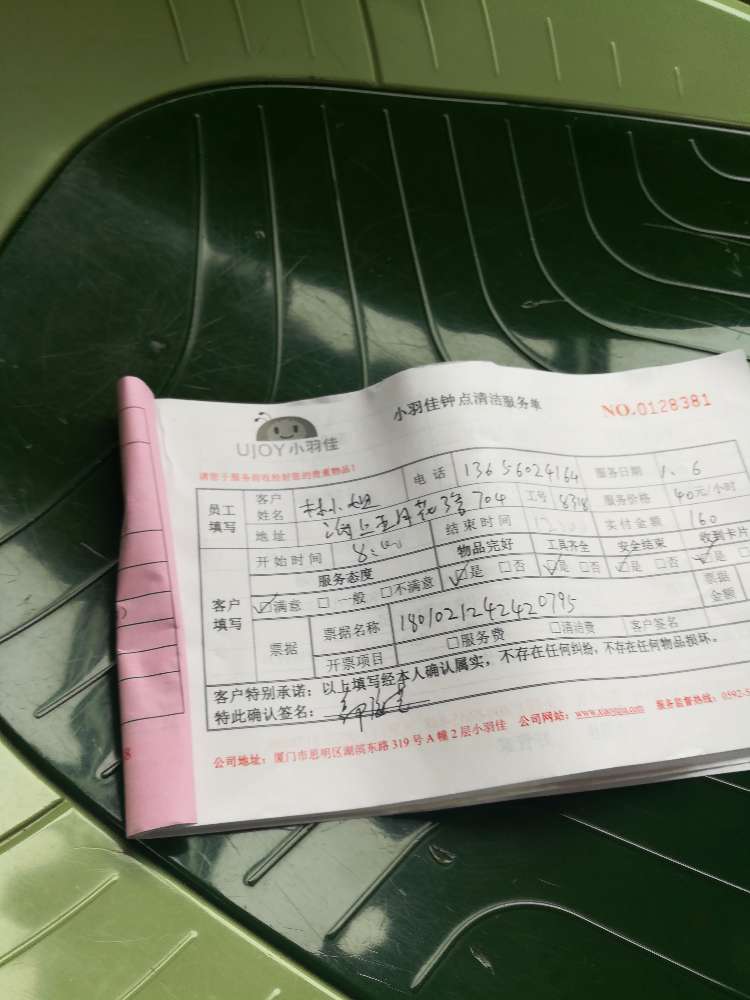 UJOY小羽佳
小羽佳钟点清洁服务单
NO.0128381
请您于服务前收检好您的贵重物品！
员工填写 客户姓名 林小姐 电话 13656024164 服务日期 1、6
地址 704 工号 8318 服务价格 40元/小时
客户填写 开始时间 8: 结束时间 12 实付金额 160
服务态度 物品完好 工具齐全 安全结束 收到卡片
满意 一般 不满意 是 否 是 否 是 否 是
票据 票据名称 180102124242420795 票据金额
开票项目 服务费 清洁费 客户签名
客户特别承诺：以上填写经本人确认属实，不存在任何纠纷，不存在任何物品损坏。
特此确认签名：
公司地址：厦门市思明区湖滨东路319号A幢2层小羽佳 公司网站：www.xiaoyujia.com 服务监督热线：0592-5